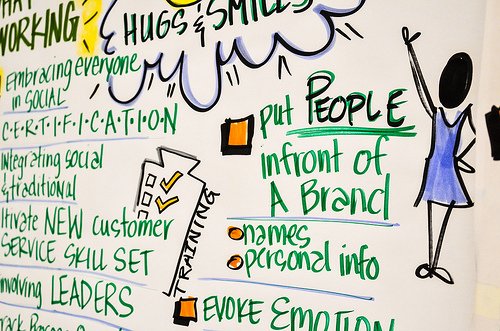 WORKING
HUGS & SMILES
Embracing everyone
in SOCIAL
C·E·R·T·I·F·I·C·A·T·I·O·N
Integrating social
& traditional
ltivate NEW customer
SERVICE SKILL SET
nvolving LEADERS
TRAINING
put PEOPLE
infront of
A Brand
names
personal info
EVOKE EMOTION